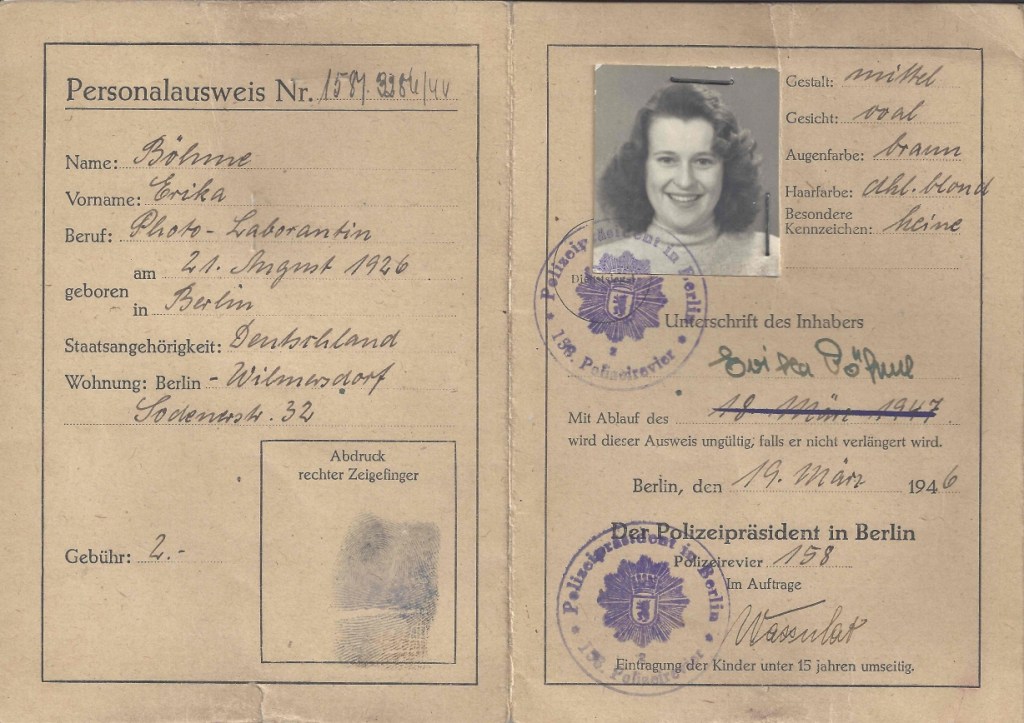 Personalausweis Nr.
Name: Böhme
Vorname: Erika
Beruf: Photo-Laborantin
geboren am 21. August 1926
in Berlin
Staatsangehörigkeit: Deutschland
Wohnung: Berlin - Wilmersdorf
Sodenerstr. 32
Abdruck
rechter Zeigefinger
Gebühr: 2.-
Gestalt: mittel
Gesicht: oval
Augenfarbe: braun
Haarfarbe: dkl. blond
Besondere
Kennzeichen: keine
Polizeipräsident in Berlin
158. Polizeirevier
2
Unterschrift des Inhabers
Erika Böhme
Mit Ablauf des 18. März 1947.
wird dieser Ausweis ungültig, falls er nicht verlängert wird.
Berlin, den 19. März 1946
Der Polizeipräsident in Berlin
Polizeirevier 158
Im Auftrage
Polizeipräsident in Berlin
158. Polizeirevier
2
Eintragung der Kinder unter 15 jahren umseitig.